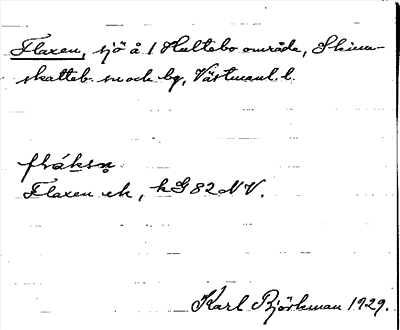 Flaxen, sjö å 1 Hultebo område, Skinn-
skatteb. sn och bg, Västmanl. l.
fláksn̥
Flaxen ek, kG 82 NV.
Karl Björkman 1929.